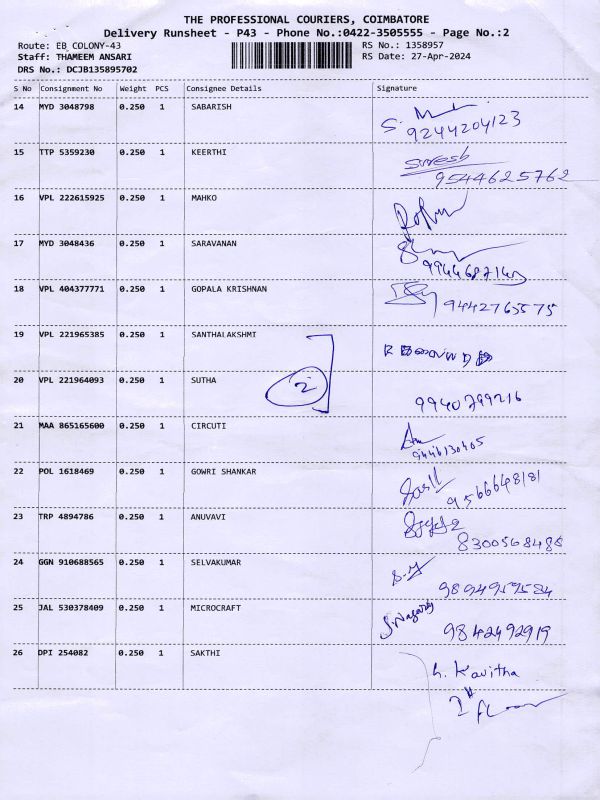 THE PROFESSIONAL COURIERS, COIMBATORE
Delivery Runsheet - P43 - Phone No.:0422-3505555 - Page No.:2
Route: EB COLONY-43 RS No.: 1358957
Staff: THAMEEM ANSARI RS Date: 27-Apr-2024
DRS No.: DCJB135895702
S No Consignment No Weight PCS Consignee Details Signature
14 MYD 3048798 0.250 1 SABARISH
9244204123
15 TTP 5359230 0.250 1 KEERTHI Suresh
9544625762
16 VPL 222615925 0.250 1 MAHKO
17 MYD 3048436 0.250 1 SARAVANAN
18 VPL 404377771 0.250 1 GOPALA KRISHNAN
9442765575
19 VPL 221965385 0.250 1 SANTHALAKSHMI
20 VPL 221964093 0.250 1 SUTHA 2
9940799216
21 MAA 865165600 0.250 1 CIRCUTI
9446130405
22 POL 1618469 0.250 1 GOWRI SHANKAR
9566648181
23 TRP 4894786 0.250 1 ANUVAVI
8300568486
24 GGN 910688565 0.250 1 SELVAKUMAR
9894959584
25 JAL 530378409 0.250 1 MICROCRAFT
9842492919
26 DPI 254082 0.250 1 SAKTHI h. Kavitha